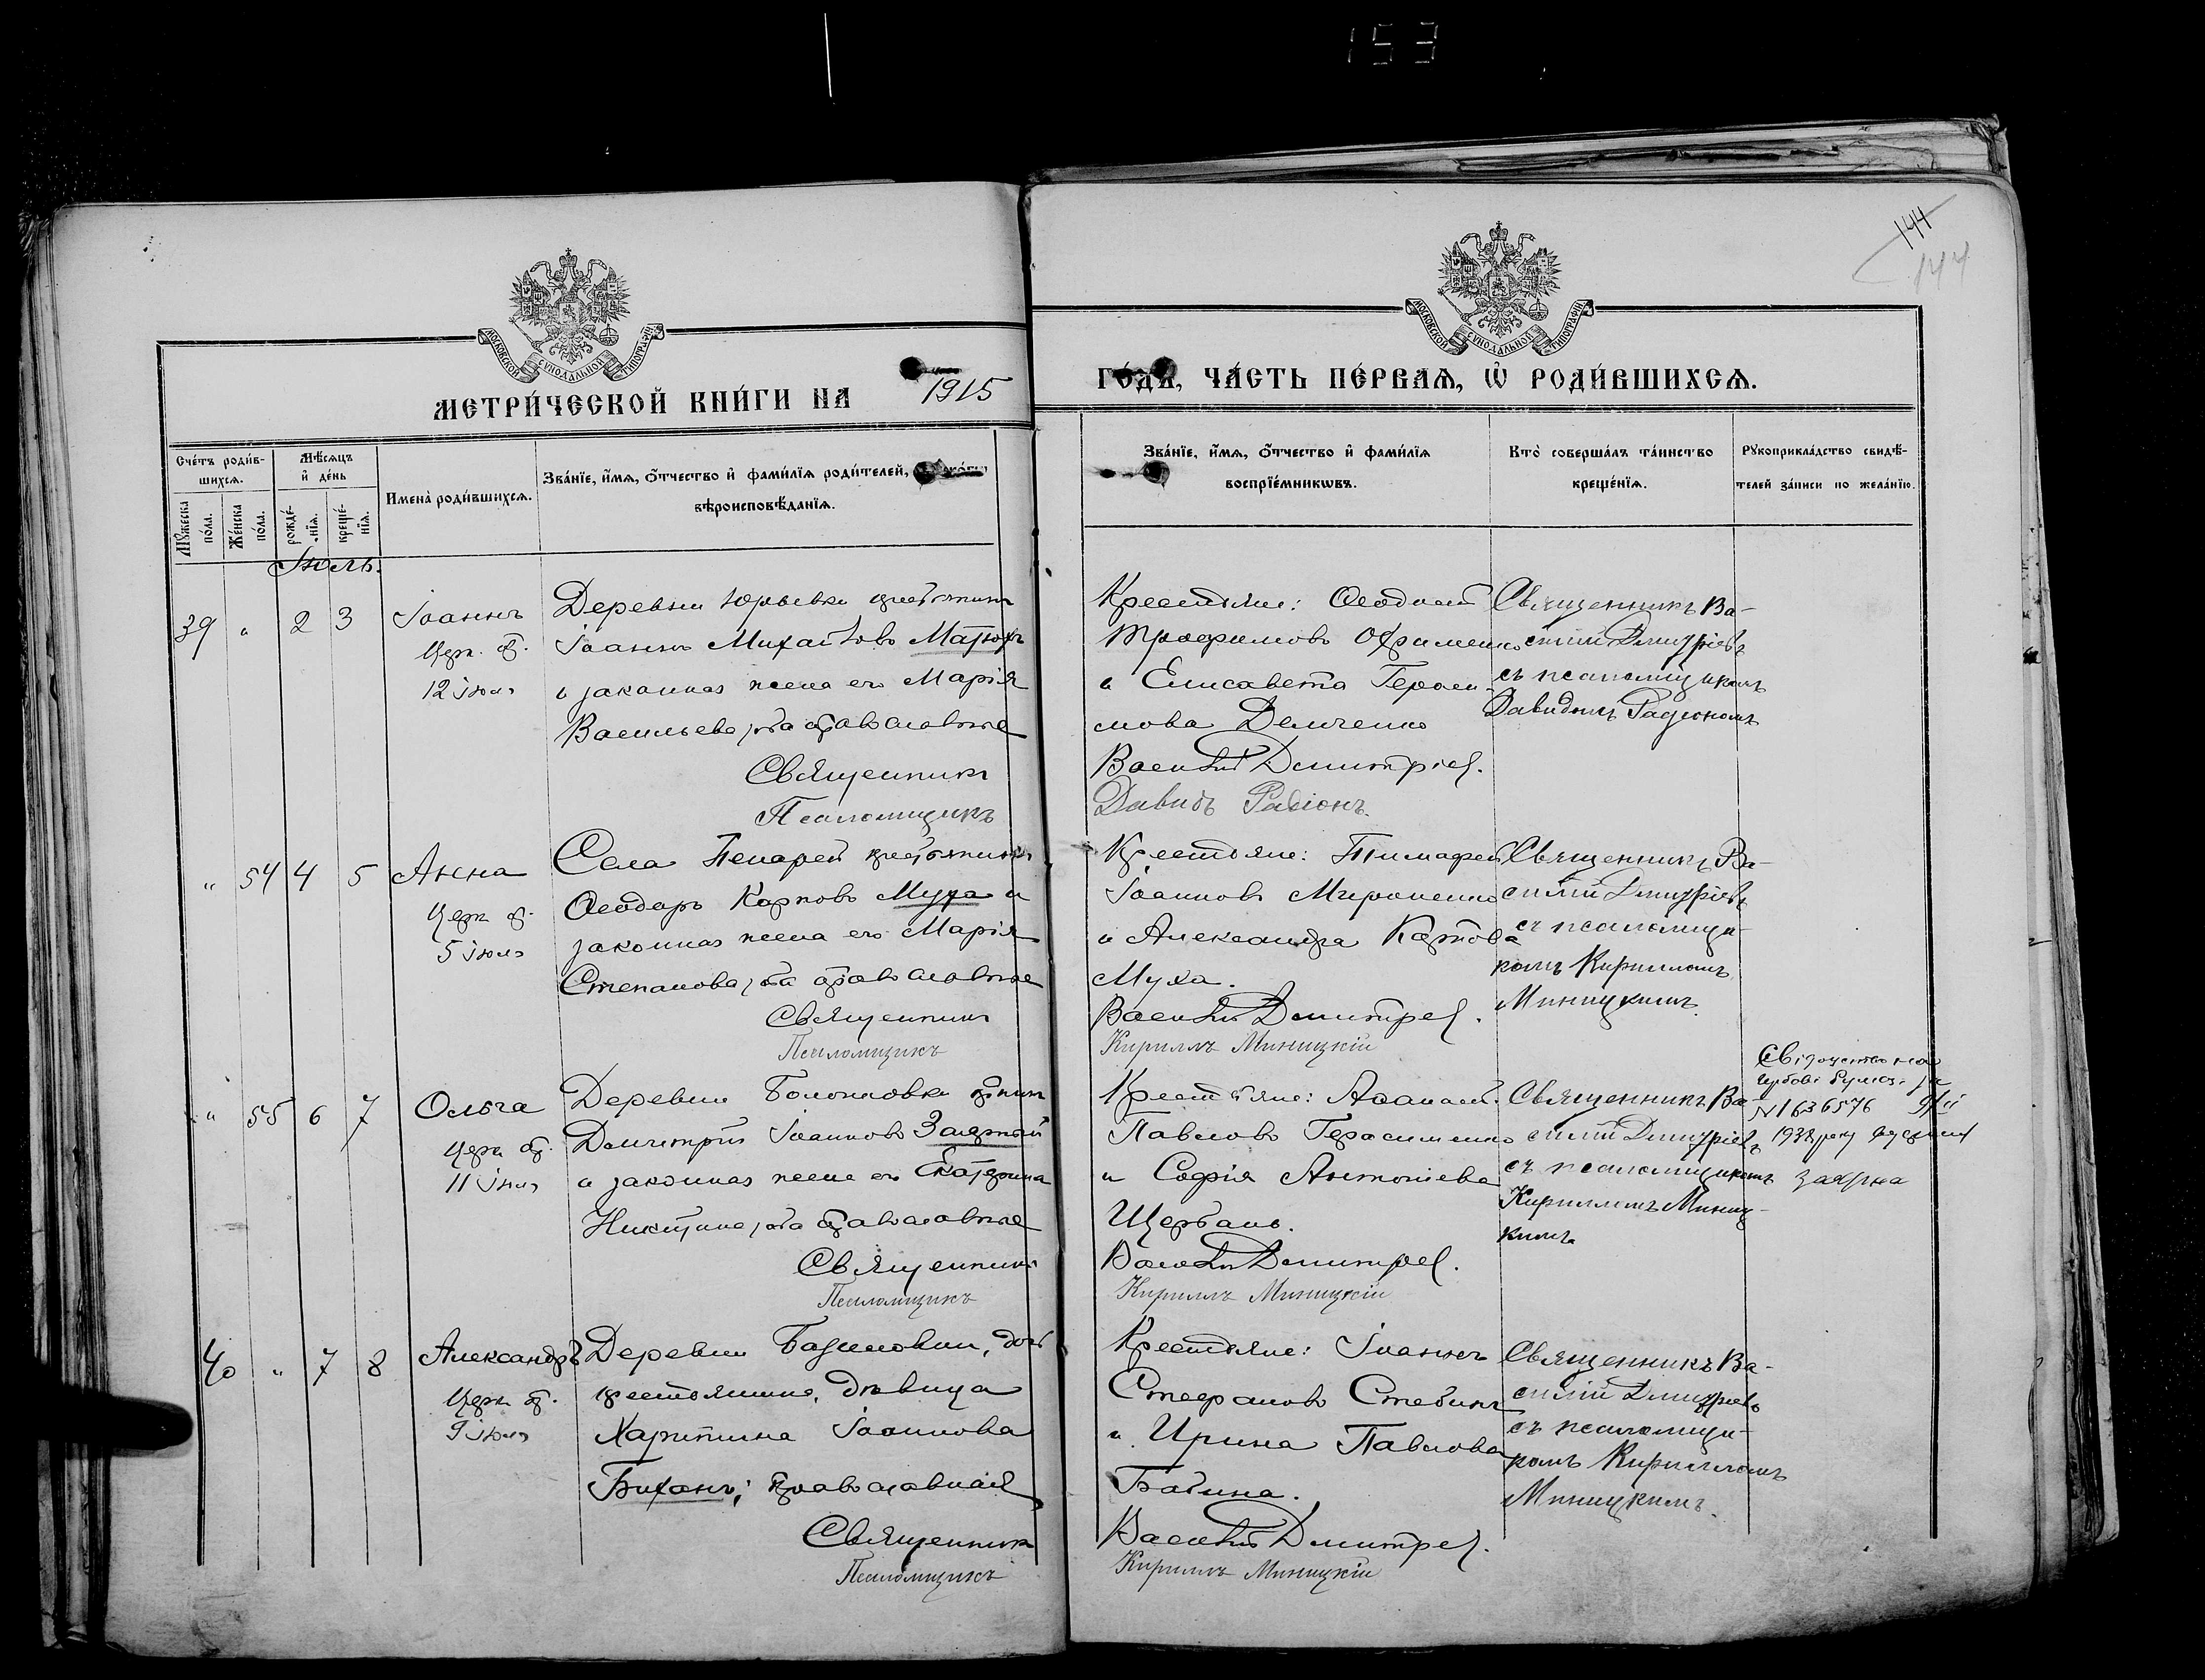 153
144
144
МОСКОВСКОЙ СУНОДАЛЬНОЙ ТИПОГРАФІИ
МОСКОВСКОЙ СУНОДАЛЬНОЙ ТИПОГРАФІИ
МЕТРИ́ЧЕСКОЙ КНИ́ГИ НА 1915
ГО́ДЪ, ЧА́СТЬ ПЕ́РВАѦ, Ѽ РОДИ́ВШИХСѦ.
Сче́тъ роди́в-
шихсѧ.
Мѹ́жеска
по́ла.
Же́нска
по́ла.
Мѣ́сѧцъ
и҆ де́нь
рожде́-
нїѧ.
креще́-
нїѧ.
И҆мена̀ роди́вшихсѧ.
Зва́нїе, и҆́мѧ, ѻ҆́тчество и҆ фами́лїѧ роди́телей,
вѣроисповѣ́данїѧ.
Зва́нїе, и҆́мѧ, ѻ҆́тчество и҆ фами́лїѧ
воспрїе́мникѡвъ.
Кто̀ соверша́лъ та́инство
креще́нїѧ.
Рꙋкоприкла́дство свидѣ́-
телей за́писи по жела́нїю.
Іюль.
39 " 2 3 Іоаннъ
Церк. пр.
12 іюля
Деревни Юрьевки крестьянинъ
Іоаннъ Михаиловъ
и законная жена его Марія
Васильева, оба православные
Священникъ
Псаломщикъ
Крестьяне: Ѳеодосій
Трофимовъ Охрименко
и Елисавета Гераси-
мова Демченко
Василій Димитріев.
Давидъ Радіонъ.
Священникъ Ва-
силій Димитріевъ
съ псаломщикомъ
Давидомъ Радіономъ
" 54 4 5 Анна
Церк. пр.
5 іюля
Села Пекарей крестьянинъ
Ѳеодоръ Карповъ Муха и
законная жена его Марія
Степанова, оба православные
Священникъ
Псаломщикъ
Крестьяне: Тимофей
Іоанновъ Мироненко
и Александра Карпова
Муха.
Василій Димитріев.
Кириллъ Миницкій
Священникъ Ва-
силій Димитріевъ
съ псаломщи-
комъ Кирилломъ
Миницкимъ.
" 55 6 7 Ольга
Церк. пр.
11 іюля
Деревни
Димитрій Іоанновъ Заярный
и законная жена его Екатерина
Никитина, оба православные
Священникъ
Псаломщикъ
Крестьяне: Аѳанасій
Павловъ Герасименко
и Софія Антоніева
Щербань.
Василій Димитріев.
Кириллъ Миницкій
Священникъ Ва-
силій Димитріевъ
съ псаломщикомъ
Кирилломъ Миниц-
кимъ
Свідоцтво на
гербов. бумазі за
№ 1636576
1938 року видано
Заярна
40 " 7 8 Александръ
Церк. пр.
9 іюля
Деревни дочь
крестьянина, дѣвица
Харитина Іоаннова
православная
Священникъ
Псаломщикъ
Крестьяне: Іоаннъ
Стефановъ
и Ирина Павлова
Бабина.
Василій Димитріев.
Кириллъ Миницкій
Священникъ Ва-
силій Димитріевъ
съ псаломщи-
комъ Кирилломъ
Миницкимъ.